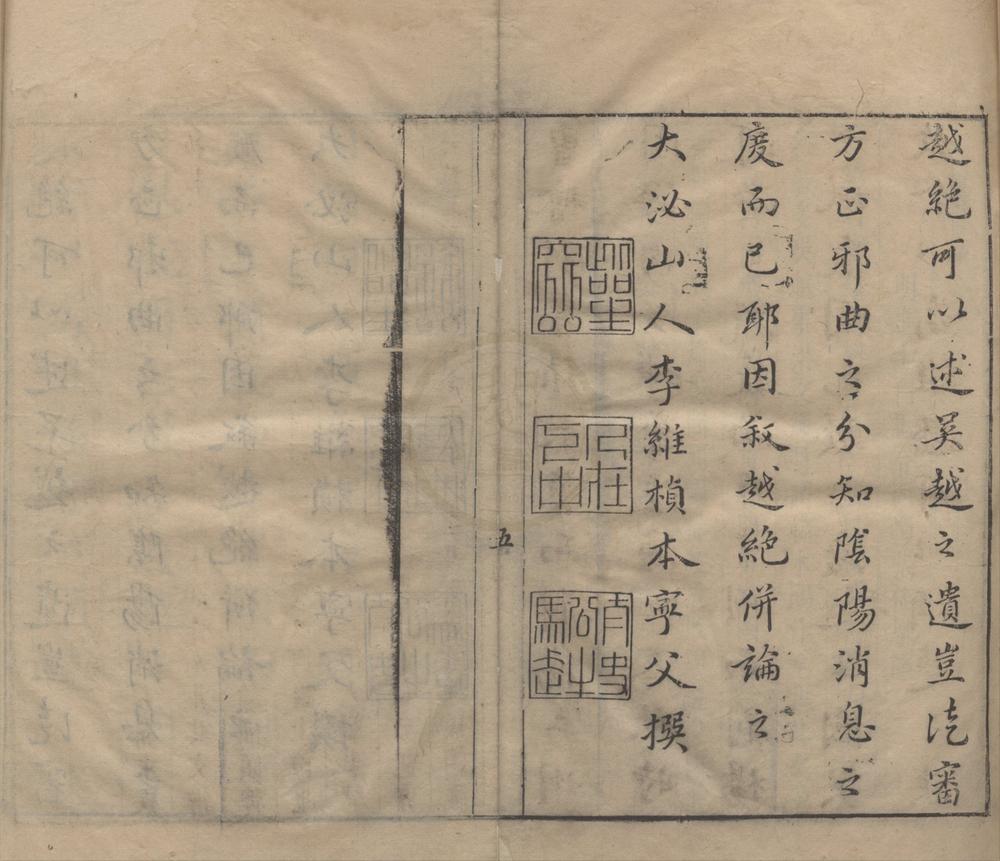 越絶可以述吴越之遺豈讫審
方正邪曲之分知陰陽消息之
度而已耶因叙越絶併論之
大泌山人李維楨本寧父撰
五